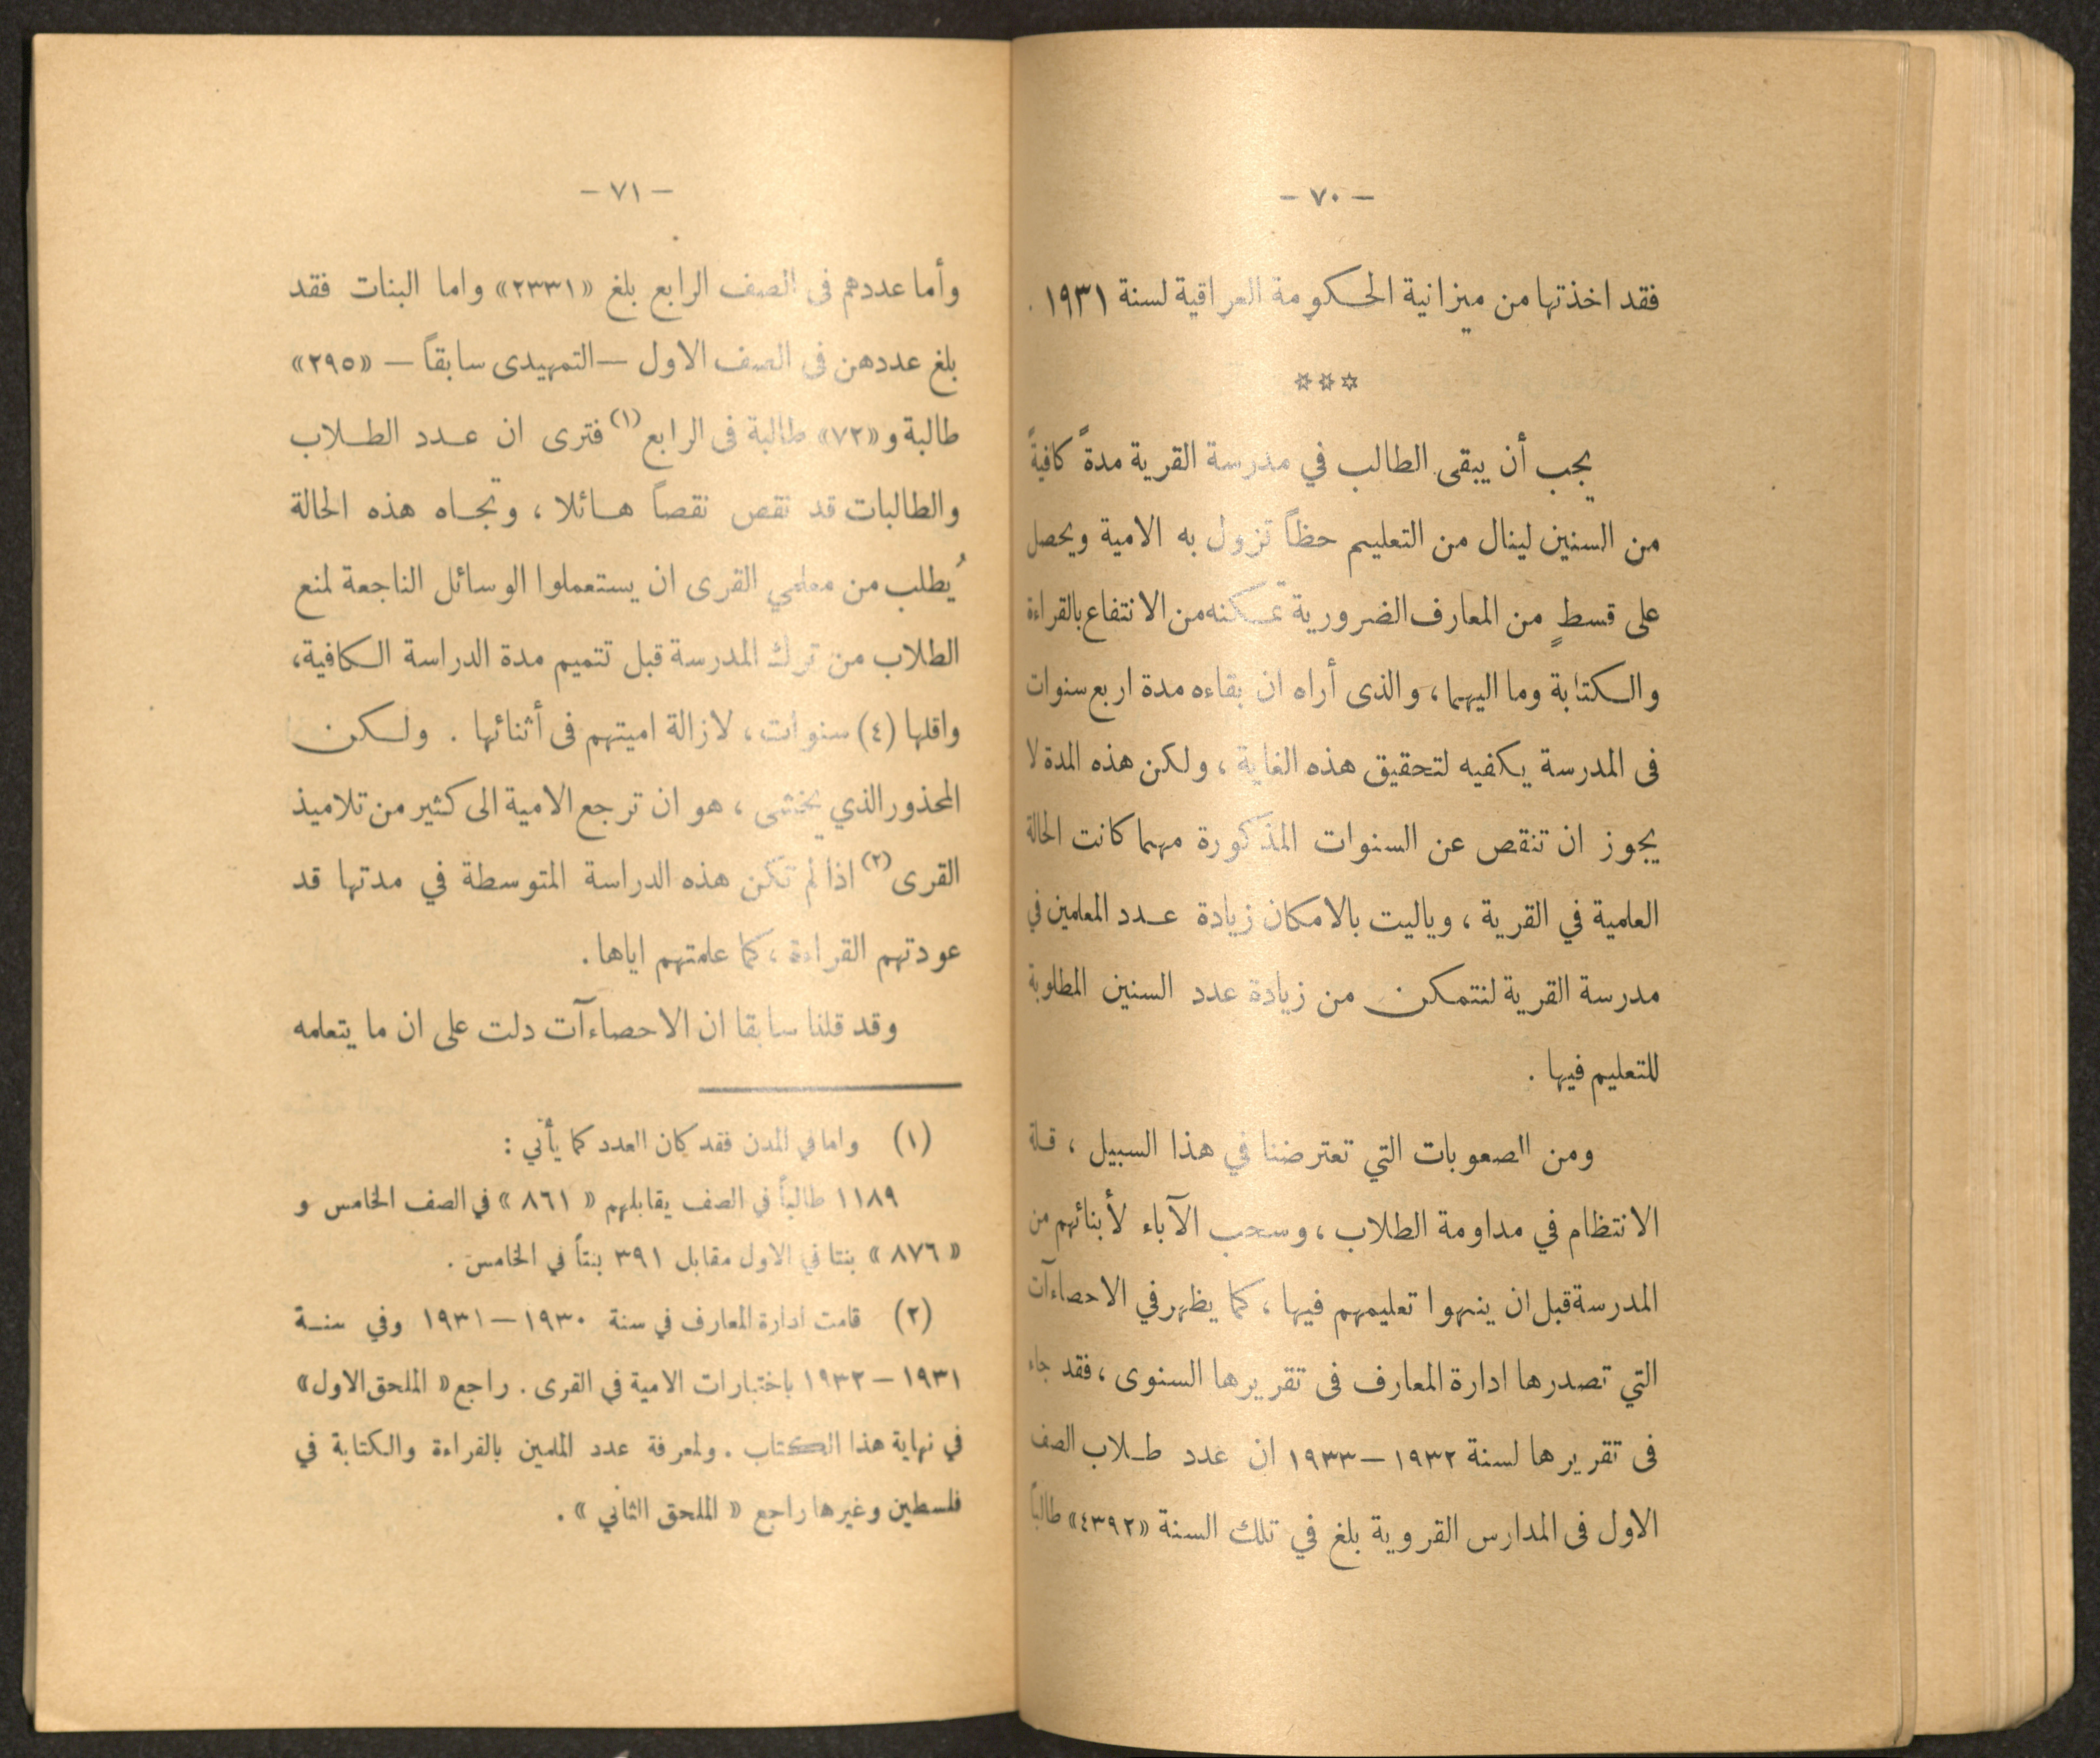 — ٧٠ —
فقد اخذتها من ميزانية الحكومة العراقية لسنة ١٩٣١ .
***
يجب أن يبقى الطالب في مدرسة القرية مدةً كافيةً
من السنين لينال من التعليم حظاً تزول به الامية ويحصل
على قسطٍ من المعارف الضرورية تمكنه من الانتفاع بالقراءة
والكتابة وما اليهما ، والذى أراه ان بقاءه مدة اربع سنوات
فى المدرسة يكفيه لتحقيق هذه الغاية ، ولكن هذه المدة لا
يجوز ان تنقص عن السنوات المذكورة مهما كانت الحالة
العلمية في القرية ، وياليت بالامكان زيادة عدد المعلمين في
مدرسة القرية لنتمكن من زيادة عدد السنين المطلوبة
للتعليم فيها .
ومن الصعوبات التي تعترضنا في هذا السبيل ، قلة
الانتظام في مداومة الطلاب ، وسحب الآباء لأبنائهم من
المدرسة قبل ان ينهوا تعليمهم فيها ، كما يظهر في الاحصاءآت
التي تصدرها ادارة المعارف فى تقريرها السنوى ، فقد جاء
فى تقريرها لسنة ١٩٣٢ — ١٩٣٣ ان عدد طلاب الصف
الاول فى المدارس القروية بلغ في تلك السنة «٤٣٩٢» طالباً
— ٧١ —
وأما عددهم فى الصف الرابع بلغ «٢٣٣١» واما البنات فقد
بلغ عددهن فى الصف الاول — التمهيدى سابقاً — «٢٩٥»
طالبة و «٧٢» طالبة فى الرابع (١) فترى ان عدد الطلاب
والطالبات قد نقص نقصاً هائلا ، وتجاه هذه الحالة
يُطلب من معلمي القرى ان يستعملوا الوسائل الناجعة لمنع
الطلاب من ترك المدرسة قبل تتميم مدة الدراسة الكافية ،
واقلها (٤) سنوات ، لازالة اميتهم فى أثنائها . ولكن
المحذور الذي يخشى ، هو ان ترجع الامية الى كثير من تلاميذ
القرى (٢) اذا لم تكن هذه الدراسة المتوسطة في مدتها قد
عودتهم القراءة ، كما علمتهم اياها .
وقد قلنا سابقا ان الاحصاءآت دلت على ان ما يتعلمه
(١) واما في المدن فقد كان العدد كما يأتي :
١١٨٩ طالباً في الصف يقابلهم « ٨٦١ » في الصف الخامس و
« ٨٧٦ » بنتا في الاول مقابل ٣٩١ بنتاً في الخامس .
(٢) قامت ادارة المعارف في سنة ١٩٣٠ — ١٩٣١ وفي سنة
١٩٣١ — ١٩٣٢ باختبارات الامية في القرى . راجع « الملحق الاول »
في نهاية هذا الكتاب . ولمعرفة عدد الملمين بالقراءة والكتابة في
فلسطين وغيرها راجع « الملحق الثاني » .